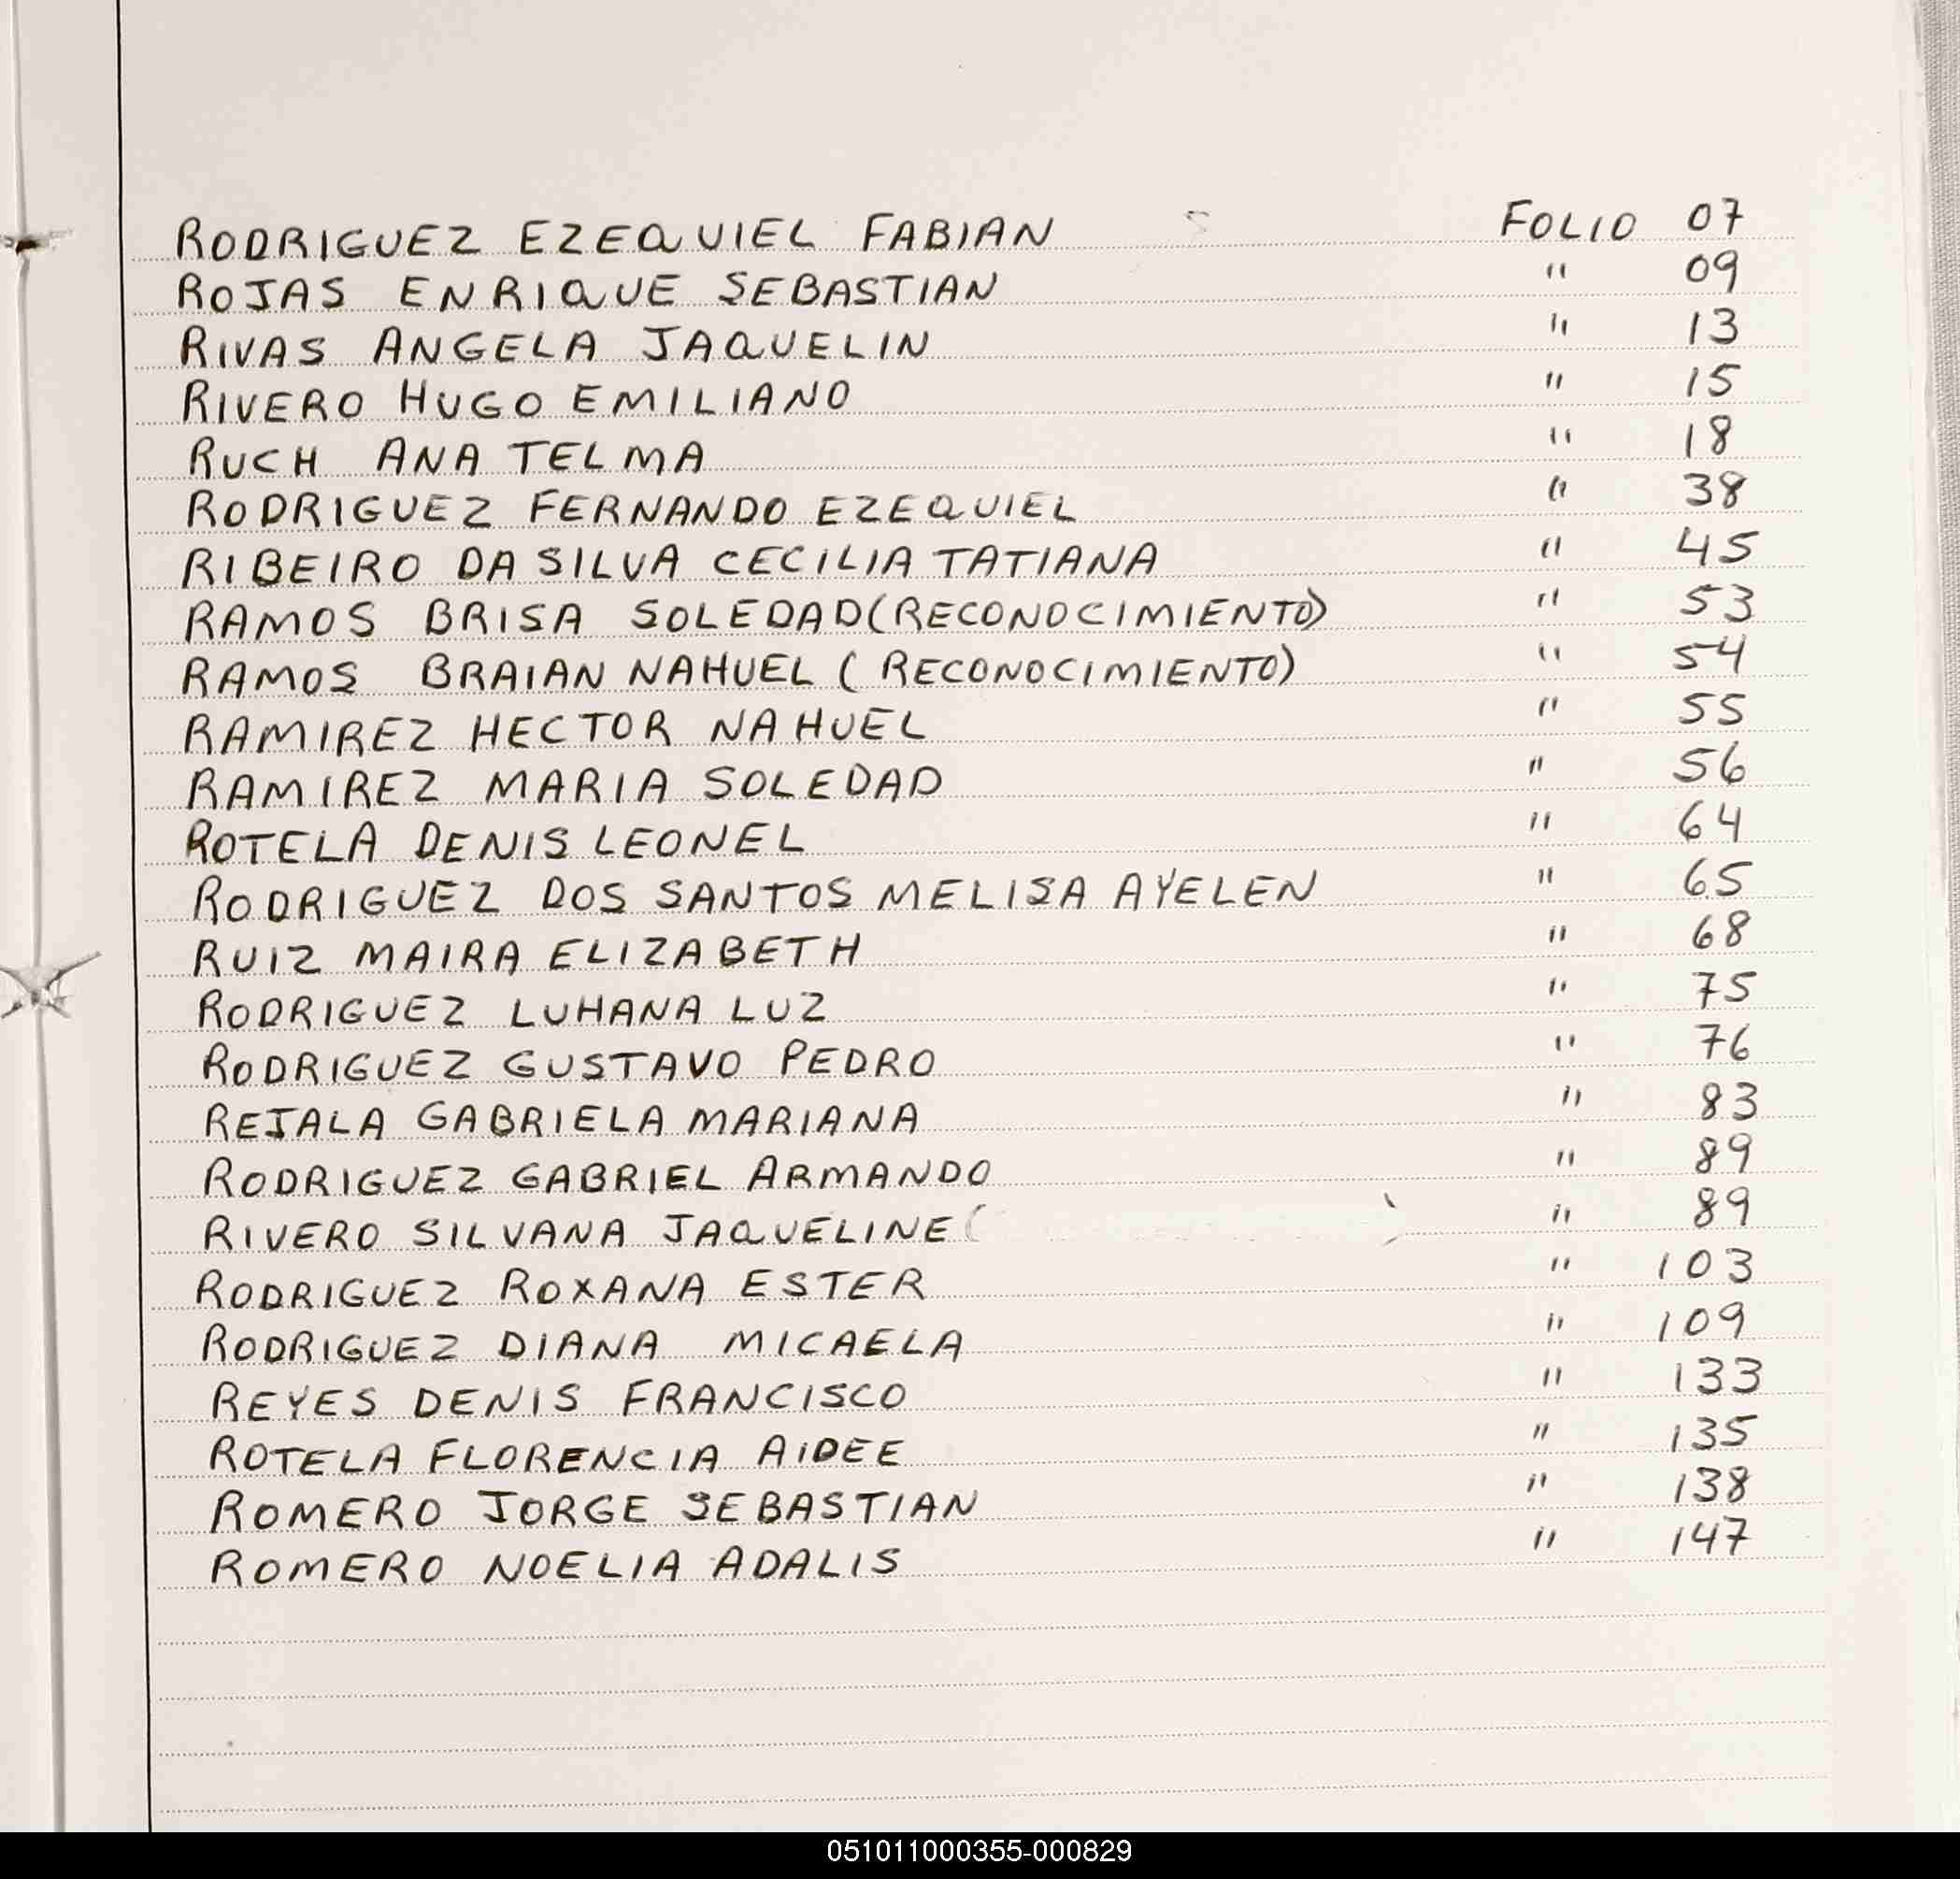 RODRIGUEZ EZEQUIEL FABIAN FOLIO 07
ROJAS ENRIQUE SEBASTIAN " 09
RIVAS ANGELA JAQUELIN " 13
RIVERO HUGO EMILIANO " 15
RUCH ANA TELMA " 18
RODRIGUEZ FERNANDO EZEQUIEL " 38
RIBEIRO DA SILVA CECILIA TATIANA " 45
RAMOS BRISA SOLEDAD (RECONOCIMIENTO) " 53
RAMOS BRAIAN NAHUEL (RECONOCIMIENTO) " 54
RAMIREZ HECTOR NAHUEL " 55
RAMIREZ MARIA SOLEDAD " 56
ROTELA DENIS LEONEL " 64
RODRIGUEZ DOS SANTOS MELISA AYELEN " 65
RUIZ MAIRA ELIZABETH " 68
RODRIGUEZ LUHANA LUZ " 75
RODRIGUEZ GUSTAVO PEDRO " 76
REJALA GABRIELA MARIANA " 83
RODRIGUEZ GABRIEL ARMANDO " 89
RIVERO SILVANA JAQUELINE ( ) " 89
RODRIGUEZ ROXANA ESTER " 103
RODRIGUEZ DIANA MICAELA " 109
REYES DENIS FRANCISCO " 133
ROTELA FLORENCIA AIDEE " 135
ROMERO JORGE SEBASTIAN " 138
ROMERO NOELIA ADALIS " 147
051011000355-000829